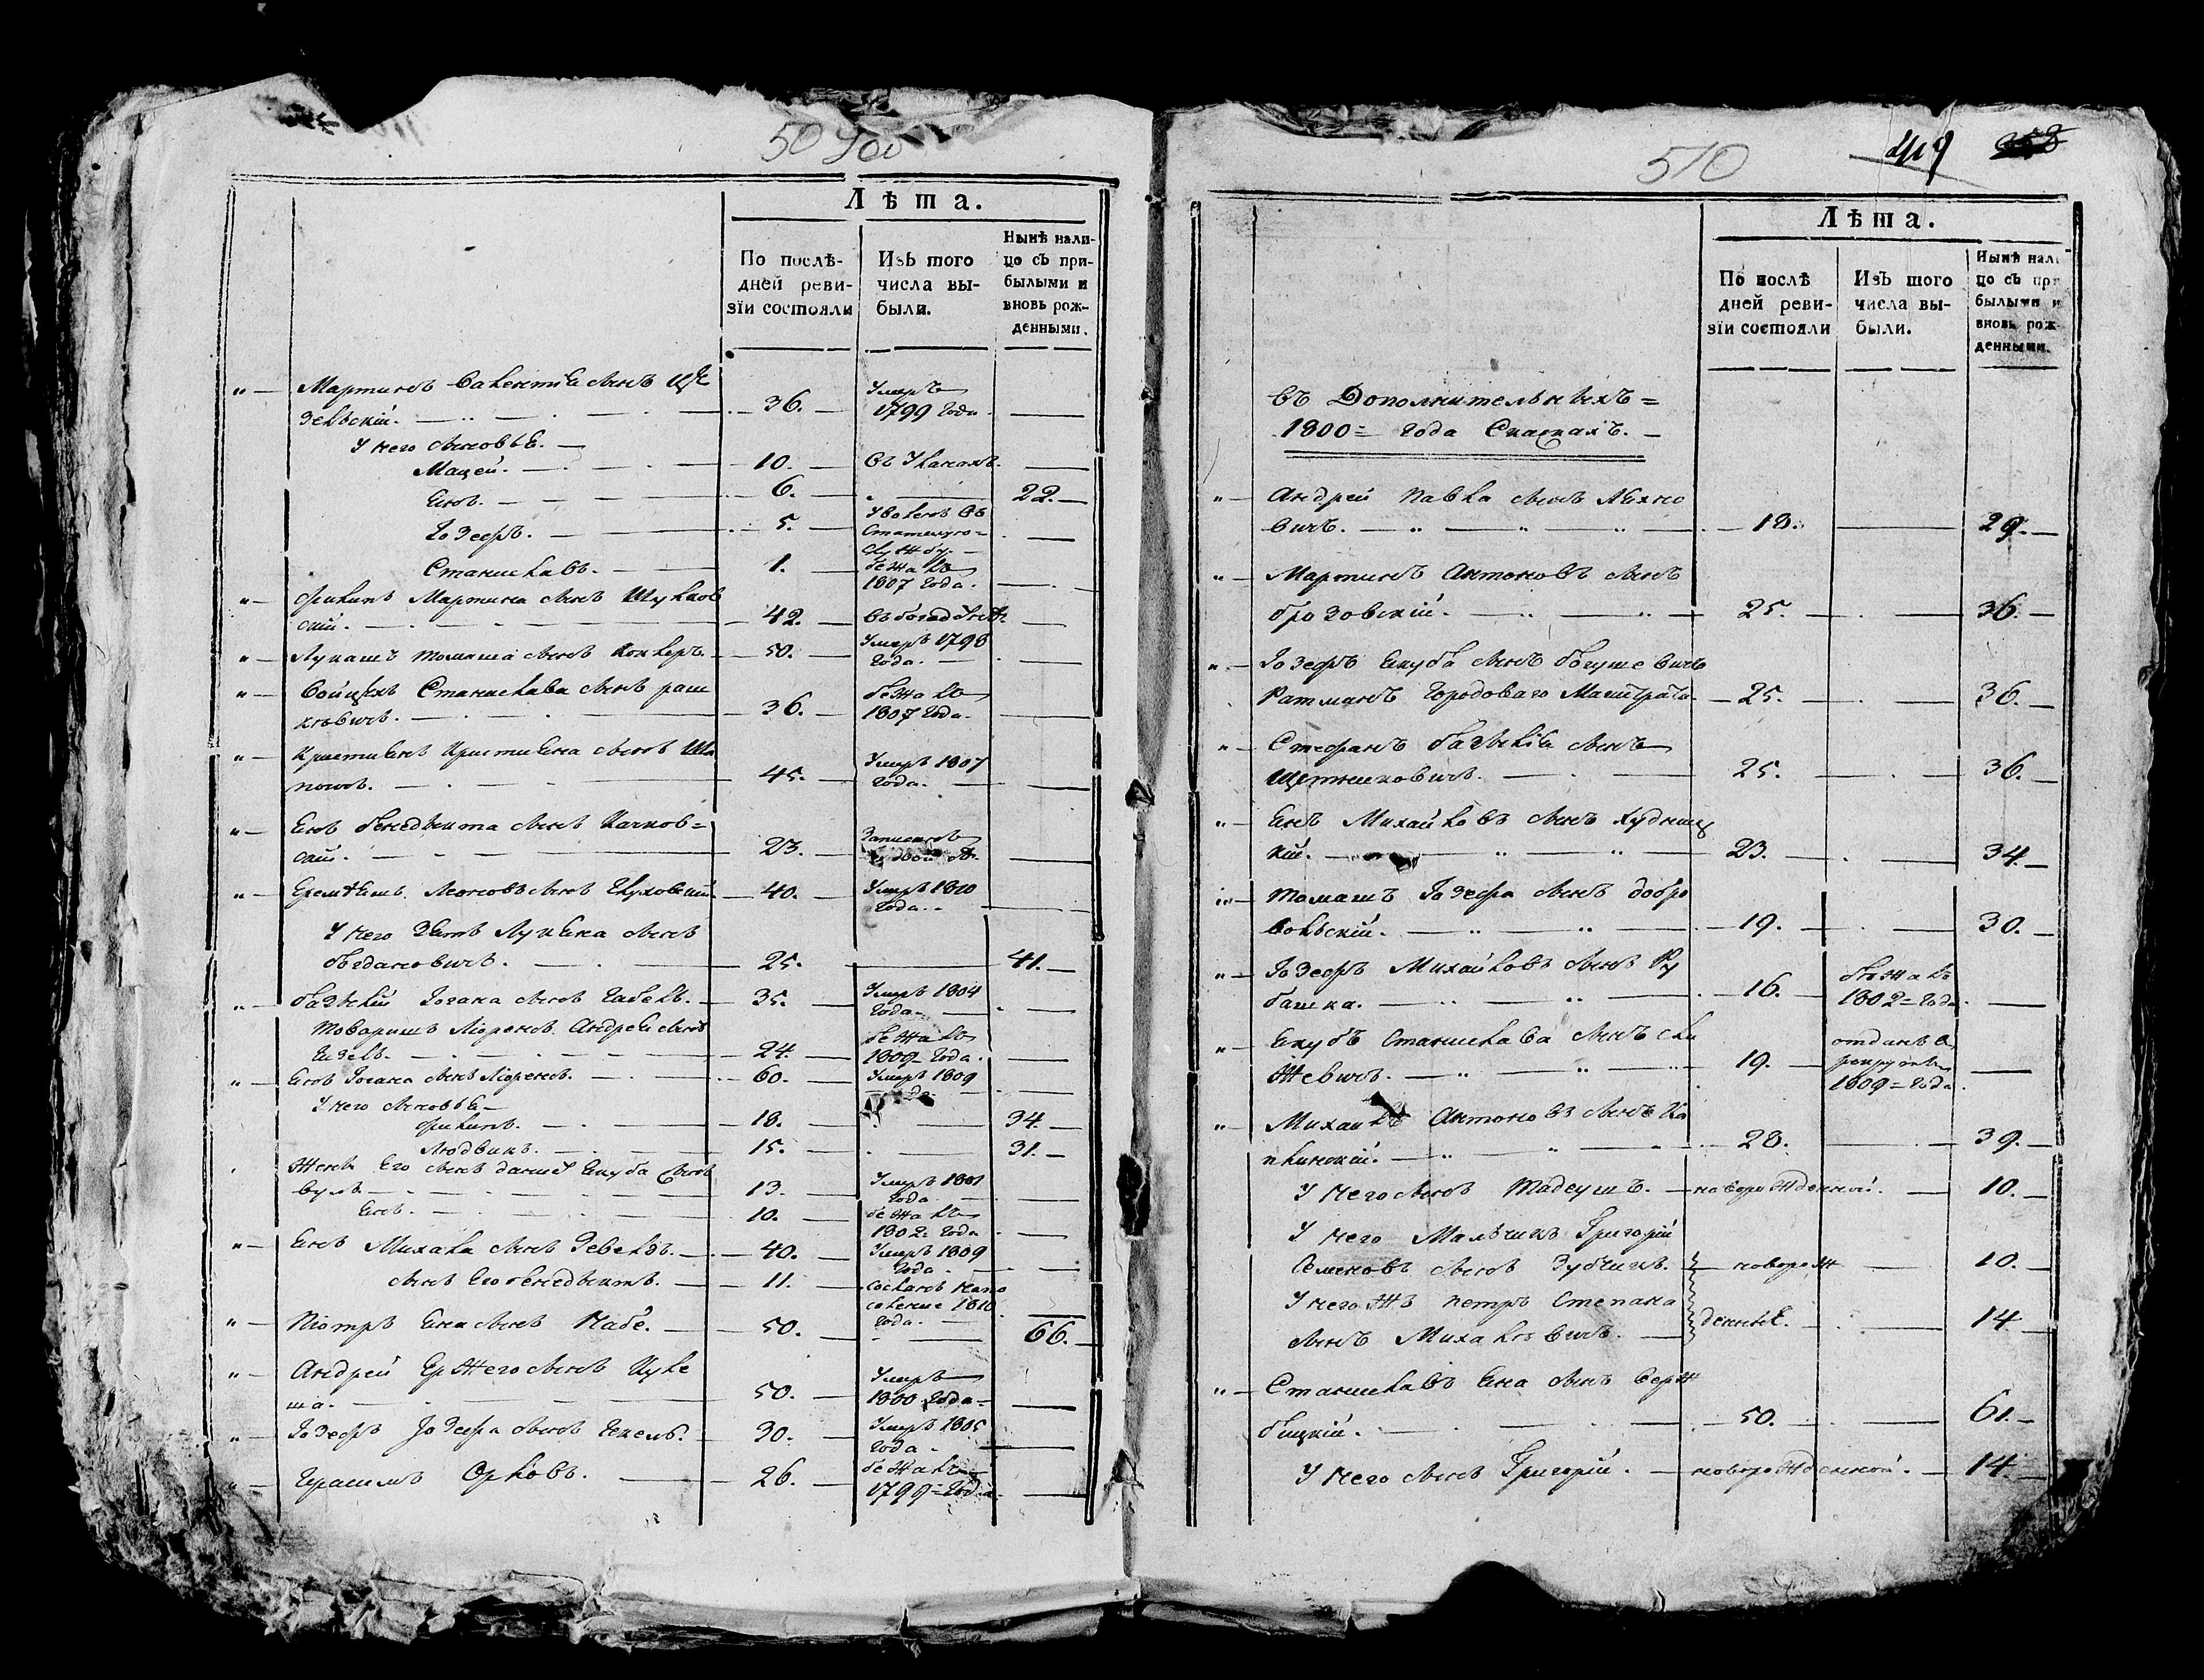 50
Лѣта.
По послѣ-
дней реви-
зіи состояли
Изъ того
числа вы-
были.
Нынѣ нали-
цо съ при-
былыми и
вновь рож-
денными.
Мартинъ сынъ
зельскій.
36.
Умеръ
1799 Года
У него сыновья.
Мацей.
10.
въ Уланахъ.
Янъ.
6.
22.
Іозефъ.
5.
службу.
Станиславъ.
1.
бежалъ
1807 Года.
Филипъ Мартина сынъ Шулков
скій.
42.
въ богадѣльнѣ
Лукашъ Томаша сынъ
50.
Умеръ 1798
Года.
Войцехъ Станислава сынъ Раш
ковичъ.
36.
бежалъ
1807 Года.
Кристиянъ Кристияна сынъ Ша
повъ.
45.
Умеръ 1807
Года.
Янъ Бенедыкта сынъ Качков=
скій.
23.
Записанъ
Леонова сынъ Глуховскій.
40.
Умеръ 1810
Года.
У него зять Лукяна сынъ
Богдановичъ.
25.
41.
Базылій Іогана сынъ Габель.
35.
Умеръ 1804
Года.
Товарищъ Лоренсъ Андрея сынъ
24.
бежалъ
1809 Года.
Янъ Іогана сынъ Лоренсъ.
60.
Умеръ 1809
Года
У него сыновья
Филипъ.
18.
34.
Людвикъ.
15.
31.
Жены Его сынъ Данiел Якуба сынъ
13.
Умеръ 1801
Года
Янъ.
10.
бежалъ
1802 Года
Янъ Михала сынъ Зевельдъ.
40.
Умеръ 1809
Года
сынъ Его Бенедыктъ.
11.
сосланъ на по
селение 1810
Года.
Піотръ Яна сынъ Набе.
50.
66.
Андрей Ержего сынъ Куле
ша.
50.
Умеръ
1800 Года
Іозефъ Іозефа сынъ
30.
Умеръ 1805
Года.
Герасимъ Орловъ.
26.
бежалъ
1799 Года.
510
419
Лѣта.
По послѣ
дней реви-
зіи состояли
Изъ того
числа вы-
были.
Нынѣ нали
цо съ при
былыми и
вновь рож-
денными.
Въ Дополнительныхъ=
1800= года Сказкахъ.
Андрей Павла сынъ Яхно
вичъ.
18.
29.
Мартинъ Антоновъ сынъ
Брозовскій.
25.
36.
Іозефъ Якуба сынъ Богушевичъ
Ратманъ Городоваго Магистрата
25.
36.
Стефанъ Базылія сынъ
Щетниковичъ.
25.
36.
Янъ Михайловъ сынъ Худниц
кій.
23.
34.
Томашъ Іозефа сынъ Добро
вольскій.
19.
30.
Іозефъ Михайловъ сынъ Ру
башка.
16.
бежалъ
1802= Года.
Якубъ Станислава сынъ Ски
жевичъ.
19.
отданъ в
рекруты
1809= Года.
Михаилъ Антоновъ сынъ Ка
плинскій.
28.
39.
У него сынъ Тадеушъ.
новорожденной.
10.
У него Мальчикъ Григорій
Семеновъ сынъ Зубчикъ.
новорож
10.
У него Жъ Петръ Степана
денные.
14
сынъ Михаловичъ.
Станиславъ Яна сынъ Верж
бицкій.
50.
61.
У него сынъ Григорій.
новорожденной.
14.